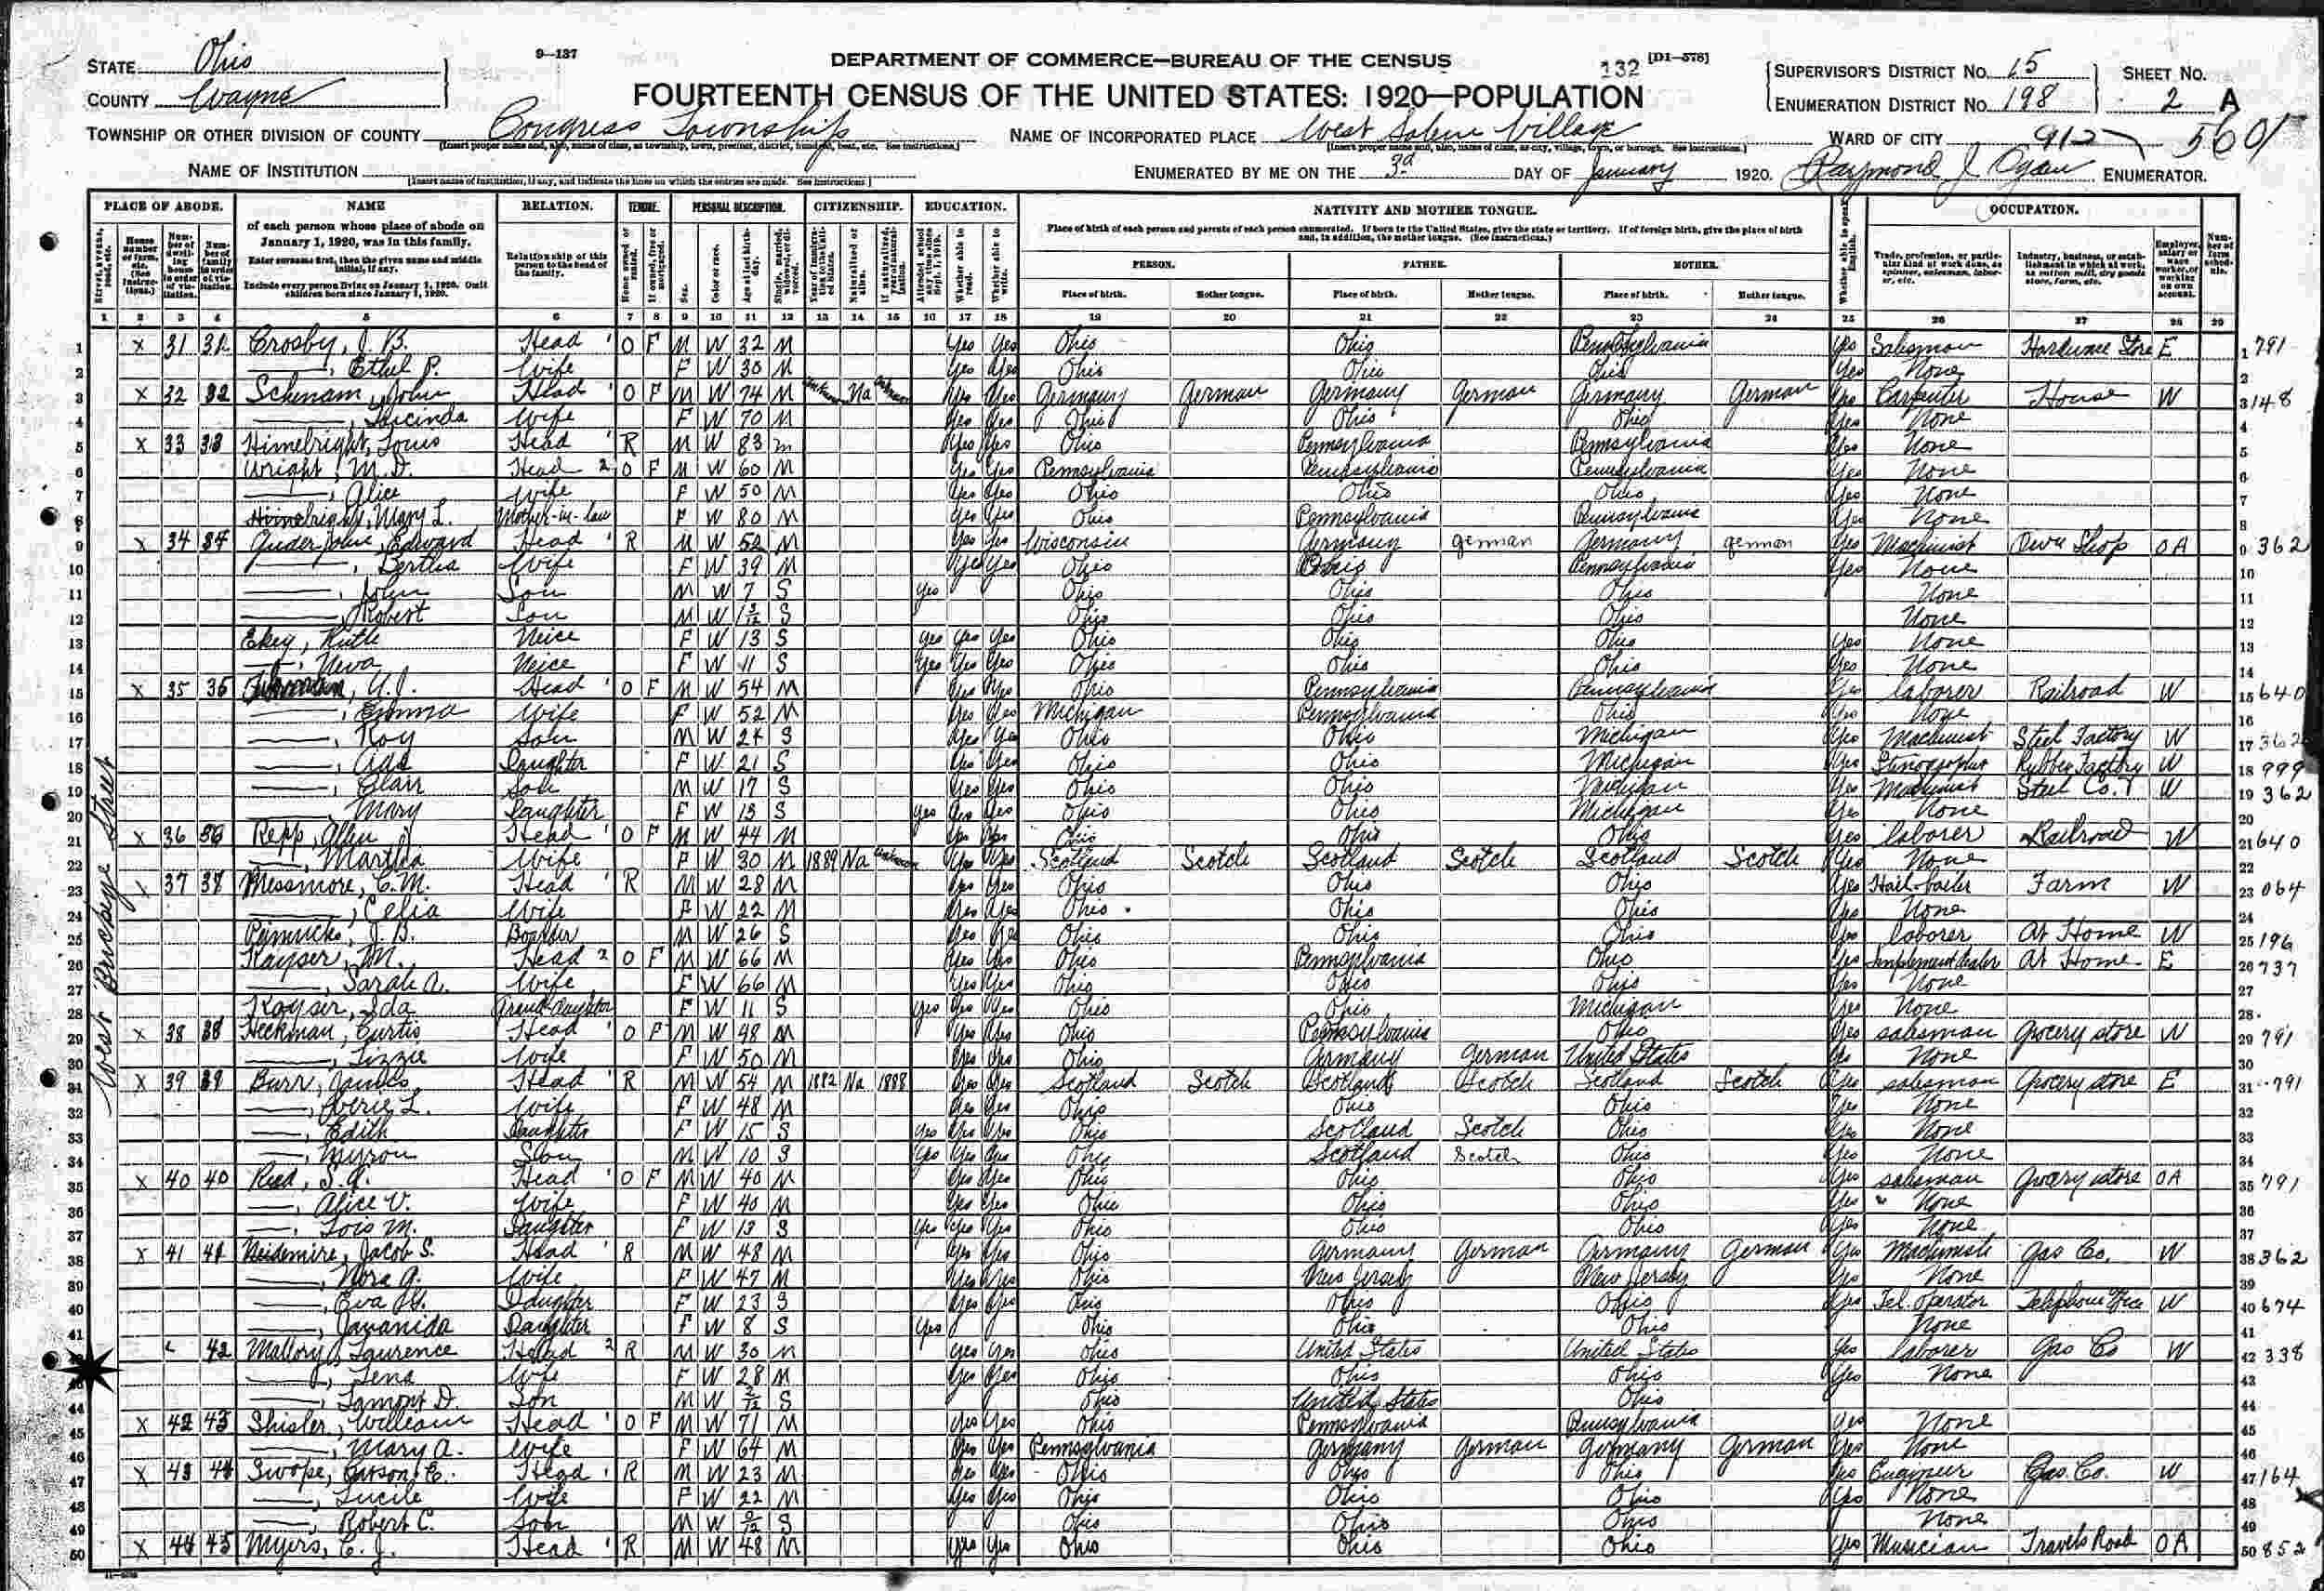 STATE Ohio
COUNTY Wayne
9—137
DEPARTMENT OF COMMERCE—BUREAU OF THE CENSUS
132 [D1-578]
FOURTEENTH CENSUS OF THE UNITED STATES: 1920—POPULATION
SUPERVISOR'S DISTRICT NO. 15
ENUMERATION DISTRICT NO. 198
SHEET NO. 2 A
TOWNSHIP OR OTHER DIVISION OF COUNTY Congress Township
NAME OF INCORPORATED PLACE West Salem Village
WARD OF CITY 912 5601
NAME OF INSTITUTION
ENUMERATED BY ME ON THE 3d DAY OF January 1920. Raymond J. ENUMERATOR.
PLACE OF ABODE. NAME RELATION. TENURE. PERSONAL DESCRIPTION. CITIZENSHIP. EDUCATION. NATIVITY AND MOTHER TONGUE. OCCUPATION.
of each person whose place of abode on January 1, 1920, was in this family.
Enter surname first, then the given name and middle initial, if any.
Include every person living on January 1, 1920. Omit children born since January 1, 1920.
Relationship of this person to the head of the family.
Place of birth of each person and parents of each person enumerated. If born in the United States, give the state or territory. If of foreign birth, give the place of birth and, in addition, the mother tongue. (See instructions.)
PERSON. FATHER. MOTHER.
Place of birth. Mother tongue. Place of birth. Mother tongue. Place of birth. Mother tongue.
1 2 3 4 5 6 7 8 9 10 11 12 13 14 15 16 17 18 19 20 21 22 23 24 25 26 27 28 29
West Buckeye Street
1 X 31 31 Crosby, J. B. Head 1 O F M W 32 M Yes Yes Ohio Ohio Pennsylvania Yes Salesman Hardware Store E 1 791
2 ——, Ethel P. Wife F W 30 M Yes Yes Ohio Ohio Ohio Yes None 2
3 X 32 32 John Head 1 O F M W 74 M Na Yes Yes Germany German Germany German Germany German Yes Carpenter House W 3 148
4 ——, Lucinda Wife F W 70 M Yes Yes Ohio Ohio Ohio Yes None 4
5 X 33 33 Himebright, Louis Head 1 R M W 83 M Yes Yes Ohio Pennsylvania Pennsylvania Yes None 5
6 Wright, M. D. Head 2 O F M W 60 M Yes Yes Pennsylvania Pennsylvania Pennsylvania Yes None 6
7 ——, Alice Wife F W 50 M Yes Yes Ohio Ohio Ohio Yes None 7
8 Himebright, Mary L. Mother-in-law F W 80 M Yes Yes Ohio Pennsylvania Pennsylvania Yes None 8
9 X 34 34 Edward Head 1 R M W 52 M Yes Yes Wisconsin Germany German Germany German Yes Machinist Own Shop OA 9 362
10 ——, Bertha Wife F W 39 M Yes Yes Ohio Ohio Pennsylvania Yes None 10
11 ——, John Son M W 7 S Yes Ohio Ohio Ohio None 11
12 ——, Robert Son M W S Ohio Ohio Ohio None 12
13 Ekey, Ruth Neice F W 13 S Yes Yes Yes Ohio Ohio Ohio Yes None 13
14 ——, Neva Neice F W 11 S Yes Yes Yes Ohio Ohio Ohio Yes None 14
15 X 35 35 Head 1 O F M W 54 M Yes Yes Ohio Pennsylvania Pennsylvania Yes laborer Railroad W 15 640
16 ——, Emma Wife F W 52 M Yes Yes Michigan Pennsylvania Ohio Yes None 16
17 ——, Roy Son M W 24 S Yes Yes Ohio Ohio Michigan Yes Machinist Steel Factory W 17 362
18 ——, Ada Daughter F W 21 S Yes Yes Ohio Ohio Michigan Yes Stenographer Rubber Factory W 18 999
19 ——, Clair Son M W 17 S Yes Yes Ohio Ohio Michigan Yes Machinist Steel Co. W 19 362
20 ——, Mary Daughter F W 13 S Yes Yes Yes Ohio Ohio Michigan Yes None 20
21 X 36 36 Repp, Allen Head 1 O F M W 44 M Yes Yes Ohio Ohio Ohio Yes laborer Railroad W 21 640
22 ——, Martha Wife F W 30 M 1889 Na Yes Yes Scotland Scotch Scotland Scotch Scotland Scotch Yes None 22
23 X 37 37 Messmore, C. M. Head 1 R M W 28 M Yes Yes Ohio Ohio Ohio Yes Farm W 23 064
24 ——, Celia Wife F W 22 M Yes Yes Ohio Ohio Ohio Yes None 24
25 J. B. Boarder M W 26 S Yes Yes Ohio Ohio Ohio Yes laborer At Home W 25 196
26 Kayser, M. Head 2 O F M W 66 M Yes Yes Ohio Pennsylvania Ohio Yes Implement dealer At Home E 26 737
27 ——, Sarah A. Wife F W 66 M Yes Yes Ohio Ohio Ohio Yes None 27
28 Kayser, Ida Grand-daughter F W 11 S Yes Yes Yes Ohio Ohio Michigan Yes None 28
29 X 38 38 Heckman, Curtis Head 1 O F M W 48 M Yes Yes Ohio Pennsylvania Ohio Yes salesman Grocery store W 29 791
30 ——, Lizzie Wife F W 50 M Yes Yes Ohio Germany German United States Yes None 30
31 X 39 39 Burr, James Head 1 R M W 54 M 1882 Na 1888 Yes Yes Scotland Scotch Scotland Scotch Scotland Scotch Yes salesman Grocery store E 31 791
32 ——, L. Wife F W 48 M Yes Yes Ohio Ohio Ohio Yes None 32
33 ——, Edith Daughter F W 15 S Yes Yes Yes Ohio Scotland Scotch Ohio Yes None 33
34 ——, Myron Son M W 10 S Yes Yes Yes Ohio Scotland Scotch Ohio Yes None 34
35 X 40 40 Reed, S. A. Head 1 O F M W 40 M Yes Yes Ohio Ohio Ohio Yes salesman Grocery store OA 35 791
36 ——, Alice V. Wife F W 40 M Yes Yes Ohio Ohio Ohio Yes None 36
37 ——, Lois M. Daughter F W 13 S Yes Yes Yes Ohio Ohio Ohio Yes None 37
38 X 41 41 Neidemire, Jacob S. Head 1 R M W 48 M Yes Yes Ohio Germany German Germany German Yes Machinist Gas Co. W 38 362
39 ——, Nora A. Wife F W 47 M Yes Yes Ohio New Jersey New Jersey Yes None 39
40 ——, Eva M. Daughter F W 23 S Yes Yes Ohio Ohio Ohio Yes Tel. Operator Telephone Office W 40 674
41 ——, Daughter F W 8 S Yes Ohio Ohio Ohio None 41
42 Mallory, Laurence Head 2 R M W 30 M Yes Yes Ohio United States United States Yes laborer Gas Co W 42 338
43 ——, Lena Wife F W 28 M Yes Yes Ohio Ohio Ohio Yes None 43
44 ——, Lamont D. Son M W 2/12 S Ohio United States Ohio 44
45 X 42 43 Shisler, William Head 1 O F M W 71 M Yes Yes Ohio Pennsylvania Pennsylvania Yes None 45
46 ——, Mary A. Wife F W 64 M Yes Yes Pennsylvania Germany German Germany German Yes None 46
47 X 43 44 Swope, Carson E. Head 1 R M W 23 M Yes Yes Ohio Ohio Ohio Yes Engineer Gas. Co. W 47 164
48 ——, Lucile Wife F W 22 M Yes Yes Ohio Ohio Ohio Yes None 48
49 ——, Robert C. Son M W S Ohio Ohio Ohio None 49
50 X 44 45 Myers, C. J. Head 1 R M W 48 M Yes Yes Ohio Ohio Ohio Yes Musician Travels Road OA 50 852